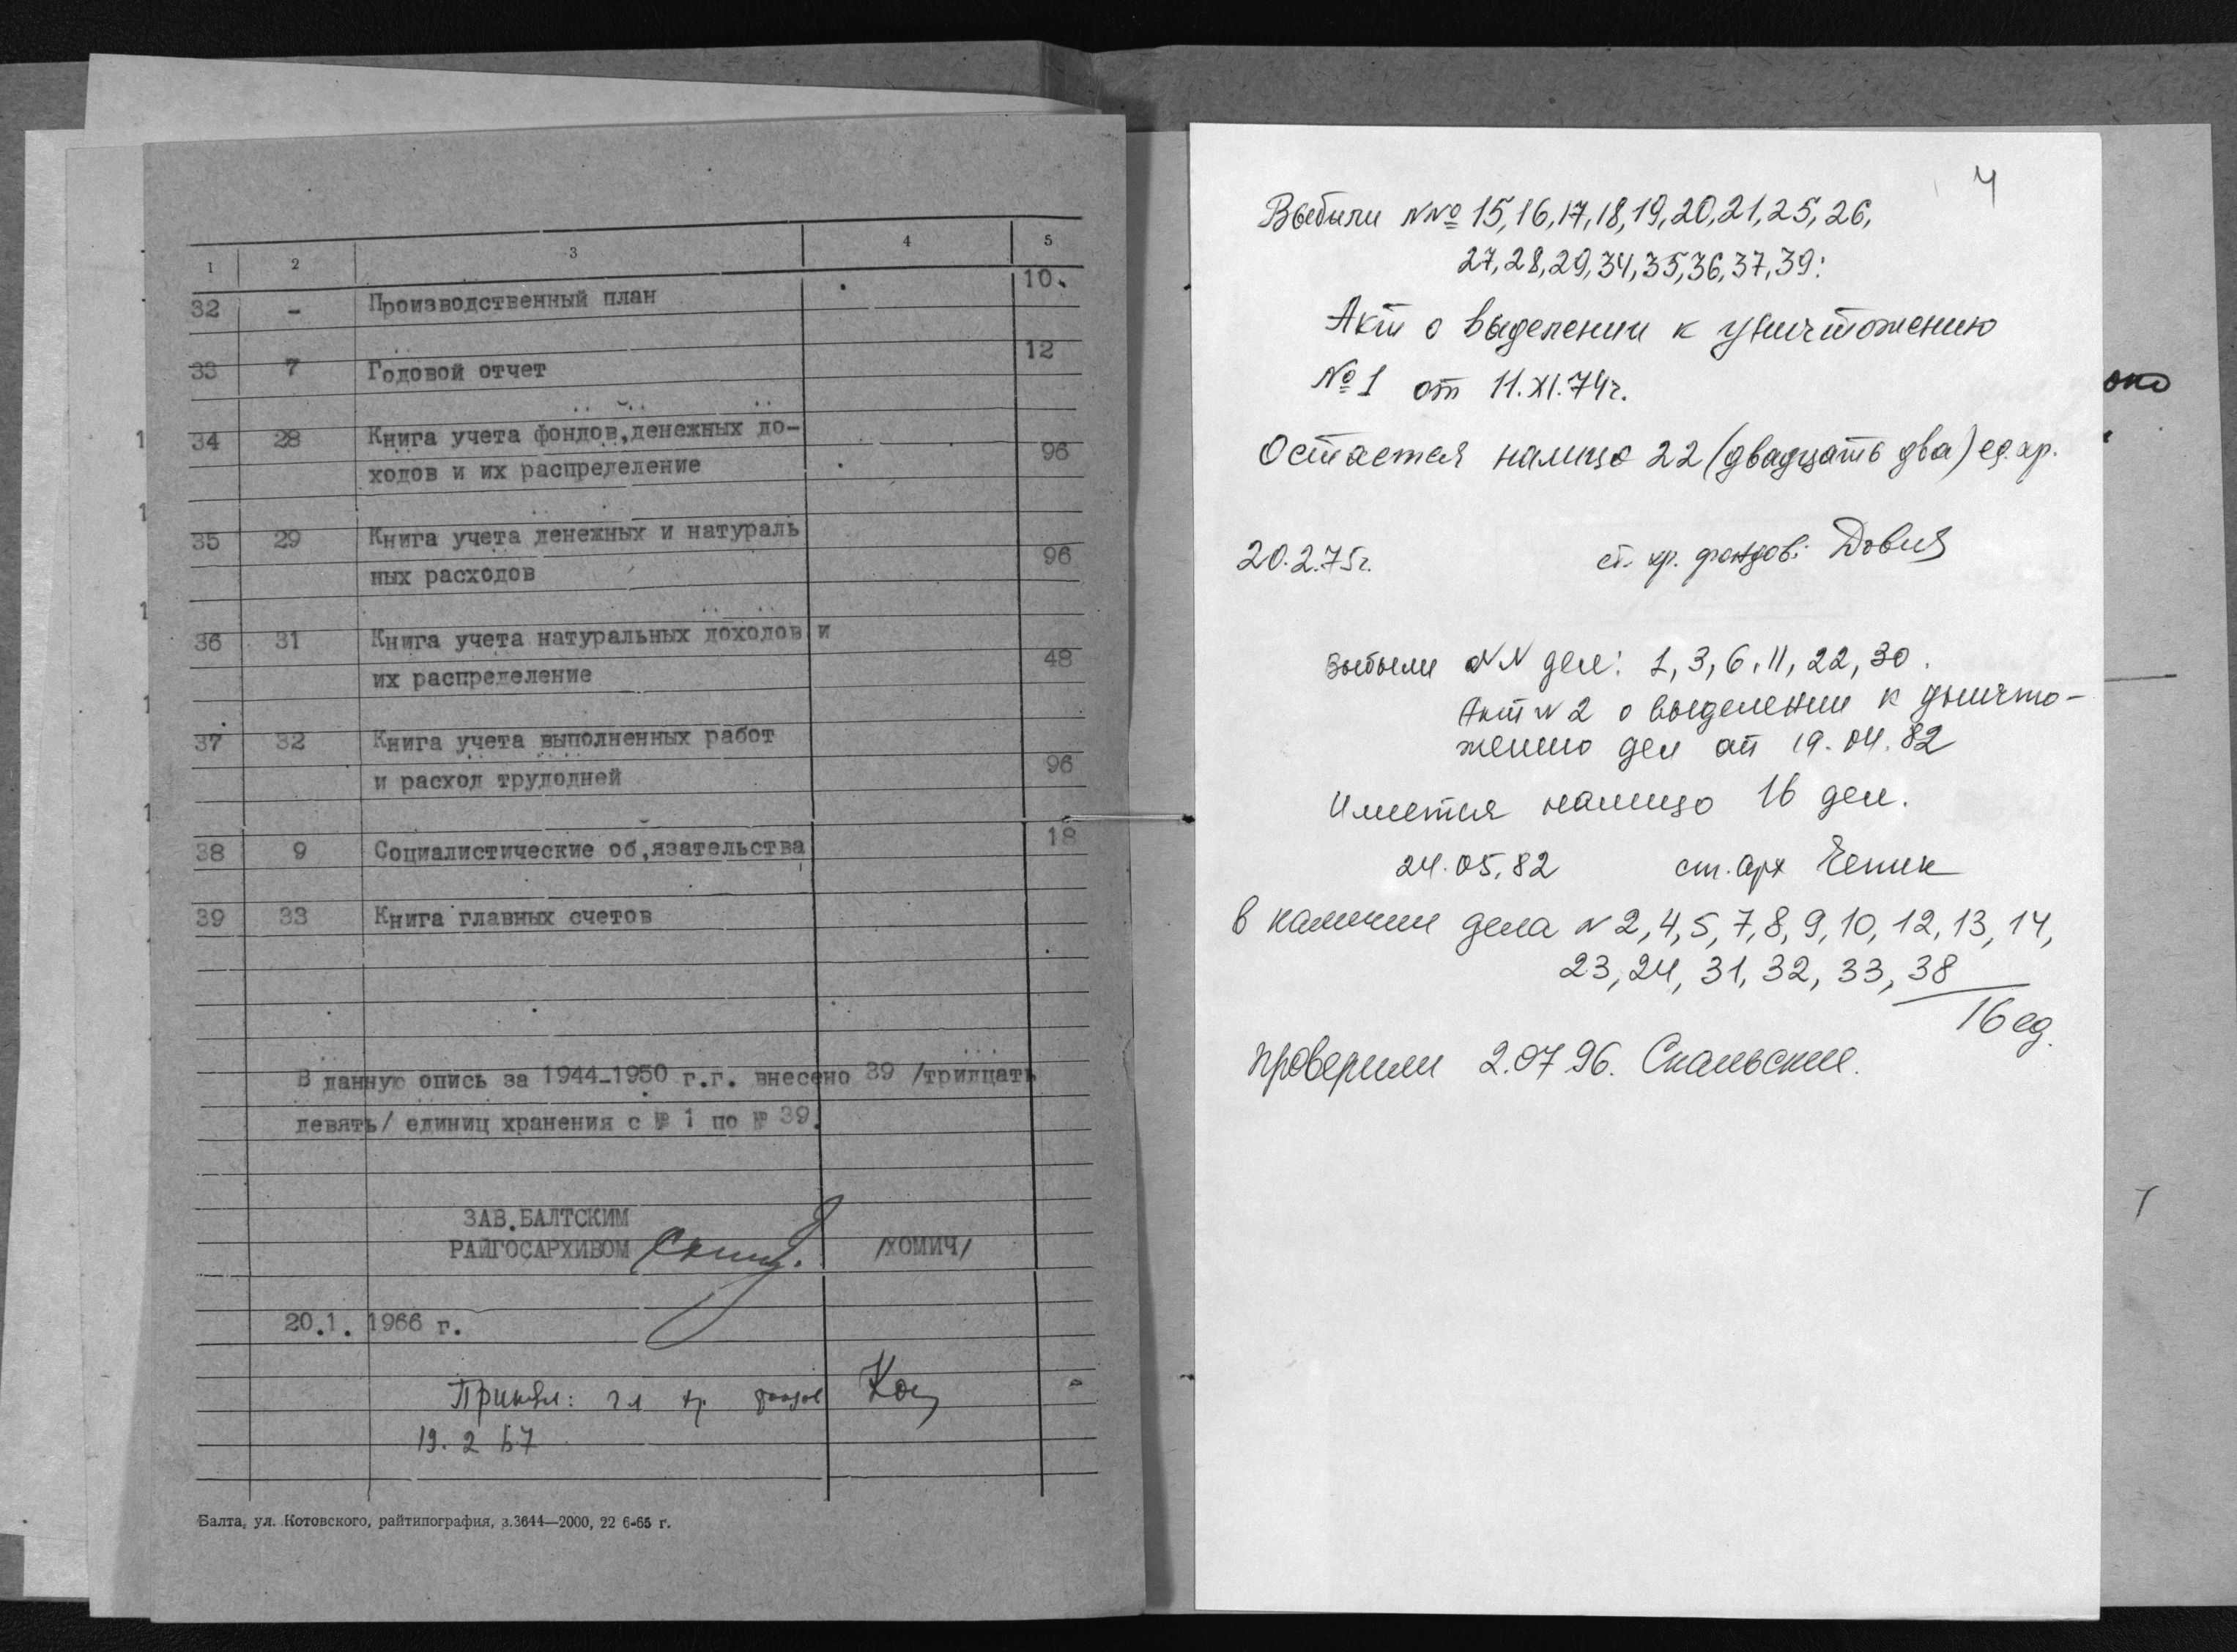 1 2 3 4 5
32 - Производственный план 10.
33 7 Годовой отчет 12
34 28 Книга учета фондов, денежных до-
ходов и их распределение 96
35 29 Книга учета денежных и натураль
ных расходов 96
36 31 Книга учета натуральных доходов и
их распределение 48
37 32 Книга учета выполненных работ
и расход трудодней 96
38 9 Социалистические об,язательства 18
39 33 Книга главных счетов
В данную опись за 1944-1950 г.г. внесено 39 /тридцать
девять/ единиц хранения с № 1 по № 39.
ЗАВ.БАЛТСКИМ
РАЙГОСАРХИВОМ /ХОМИЧ/
20.1. 1966 г.
Принял: гл хр фондов
19. 2 67
Балта, ул. Котовского, райтипография, з.3644—2000, 22 6-65 г.
4
Выбыли №№ 15,16,17,18,19,20,21,25,26,
27,28,29,34,35,36,37,39:
Акт о выделении к уничтожению
№1 от 11.XI.74г.
Остается налицо 22 (двадцать два) ед.хр.
20.2.75г. ст. хр. фондов:
выбыли NN дел: 1, 3, 6, 11, 22, 30.
Акт N 2 о выделении к уничто-
жению дел от 19.04.82
Имеется налицо 16 дел.
24.05.82 ст. арх
в наличии дела N 2, 4, 5, 7, 8, 9, 10, 12, 13, 14,
23, 24, 31, 32, 33, 38
16 ед.
проверили 2.07 96.